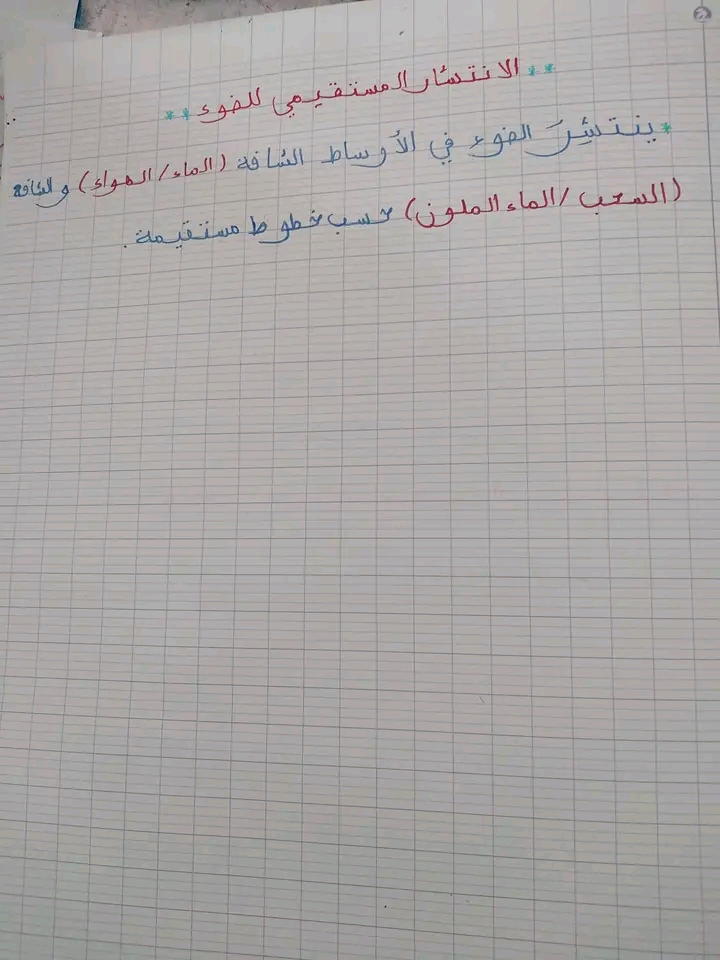 ** الانتشار المستقيمي للضوء **
* ينتشِرَ الضوء في الأوساط الشافة (الماء/الهواء) والشافة
(السحب/الماء الملون) حسب خطوط مستقيمة.